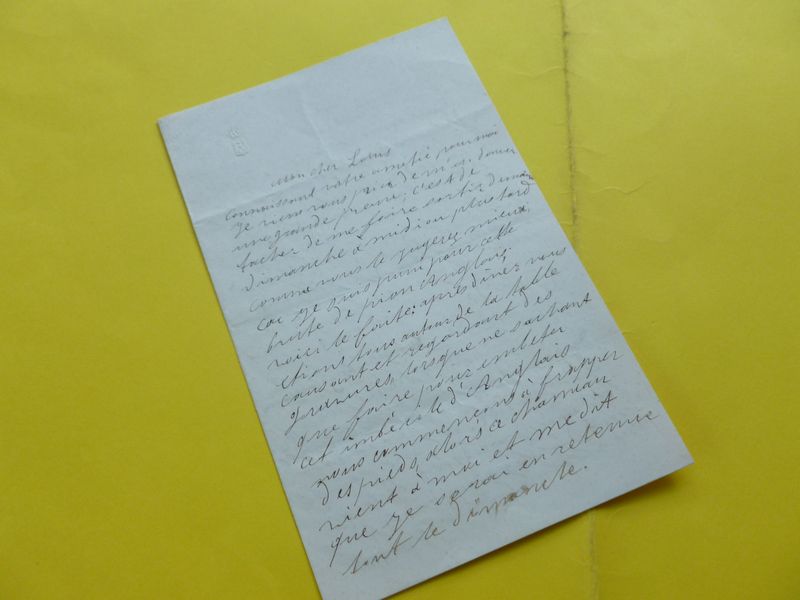 R
Mon cher Louis
Connaissant votre amitié pour moi
je viens vous prier de m'en donner
une grande preuve; c'est de
tacher de me faire sortir demain
dimanche à midi ou plus tard
comme vous le jugerez mieux,
car je suis puni pour cette
brute de pion Anglais;
voici le faite: après dîner nous
étions tous autour de la table
causant et regardant des
gravures, lorsque ne sachant
que faire pour embeter
cet imbécile d'Anglais
nous commençons à frapper
des pieds, alors ce chameau
vient à moi et me dit
que je serai en retenue
tout le dimanche.